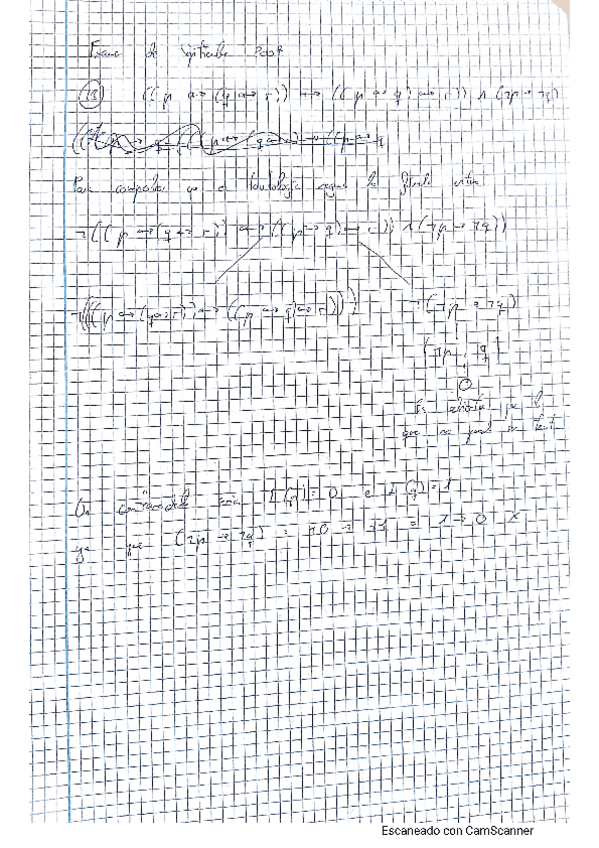 Examen de Septiembre 2009
(13) ((p ↔ (q ↔ r)) ↔ ((p ↔ q) ↔ r)) ∧ (¬p → ¬q)
Para comprobar que es tautología
¬(((p ↔ (q ↔ r)) ↔ ((p ↔ q) ↔ r)) ∧ (¬p → ¬q))
¬(((p ↔ (q ↔ r)) ↔ ((p ↔ q) ↔ r))) ¬(¬p → ¬q)
{¬p, q}
O
Es abierta por lo
que no puede ser taut
Un contramodelo sería I(p) = 0 e I(q) = 1
ya que (¬p → ¬q) = ¬0 → ¬1 = 1 → 0 x
Escaneado con CamScanner